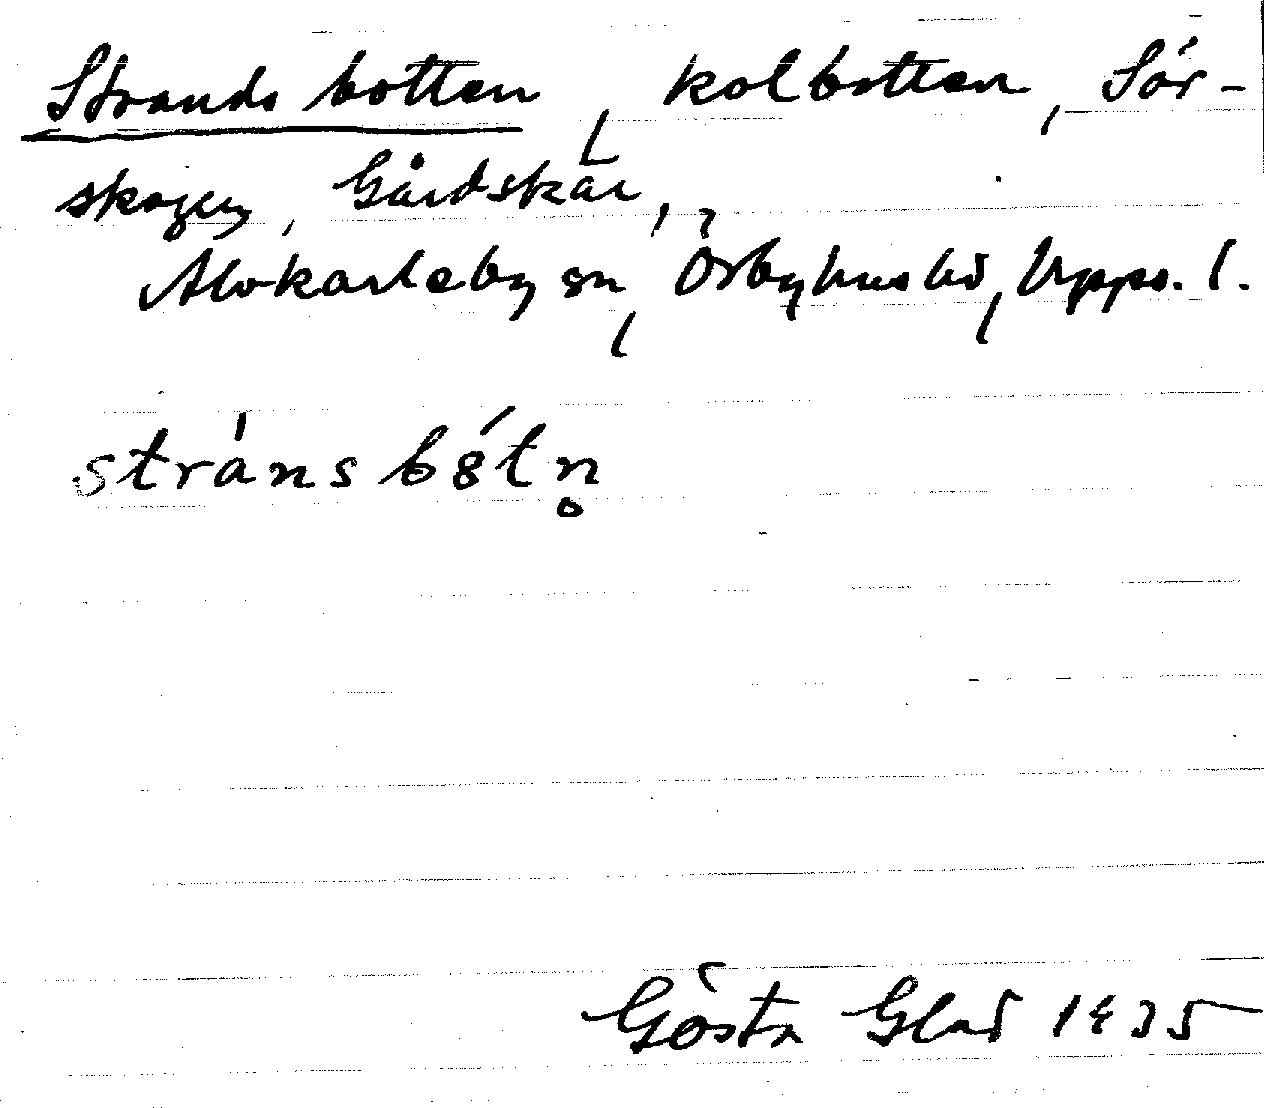 Strandsbotten, kolbotten, Sör-
skogen, Gårdskär,
Älvkarleby sn, Örbyhus hd, Upps. l.
stránsbót n̥
Gösta Glad 1935